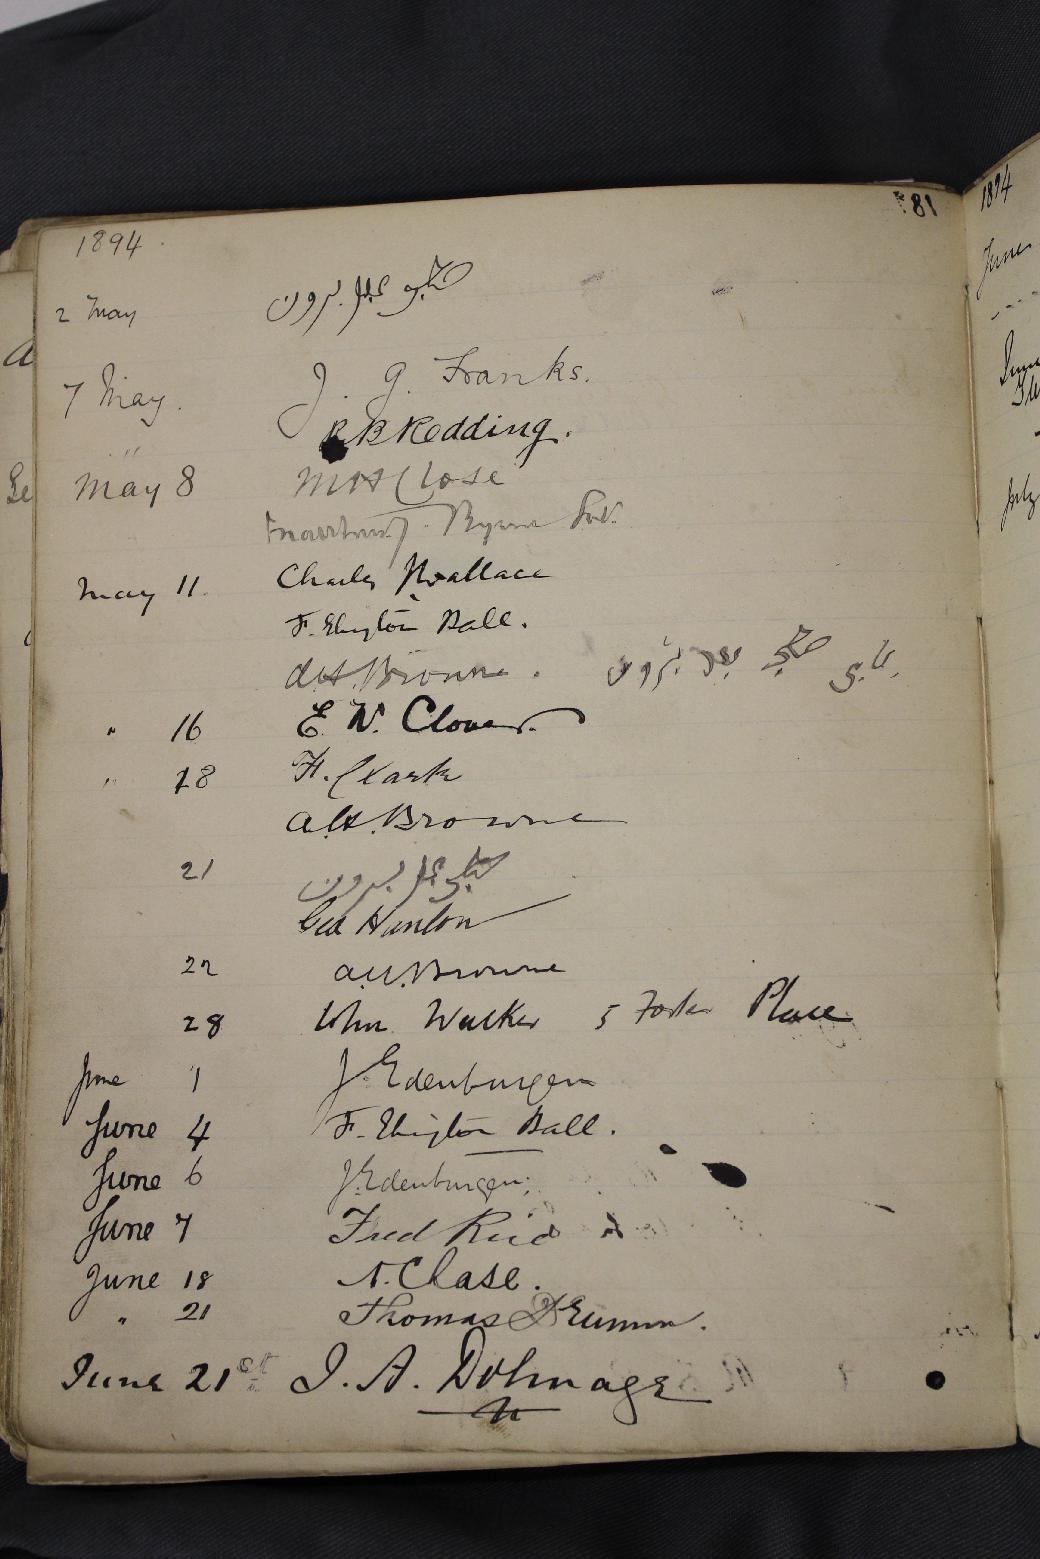 81
1894
2 May
7 May. J. G. Franks.
R B Redding.
May 8 M H Close
Byrne
May 11. Charles Wallace
F. Elrington Ball.
A.H. Browne.
" 16 E. W. Clover.
" 18 H. Clark
A.H. Browne
21
Geo Hanlon
22 A.H. Browne
28 John Walker 5 Foster Place
June 1 J. Edenburgen
June 4 F. Elrington Ball.
June 6 J. Edenburgen
June 7 Fred Reid
June 18 N. Chase.
" 21 Thomas
June 21st J. A. Dolmage
1894
June
July